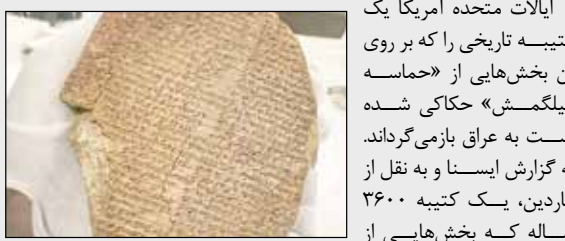 ایالات متحده آمریکا یک
کتیبـــه تاریخی را که بر روی
آن بخش‌هایی از «حماســـه
گیلگمـــش» حکاکی شـــده
اســـت به عراق بازمی‌گرداند.
به گزارش ایســـنا و به نقل از
گاردین، یـــک کتیبه ۳۶۰۰
ســـاله کـــه بخش‌هایـــی از